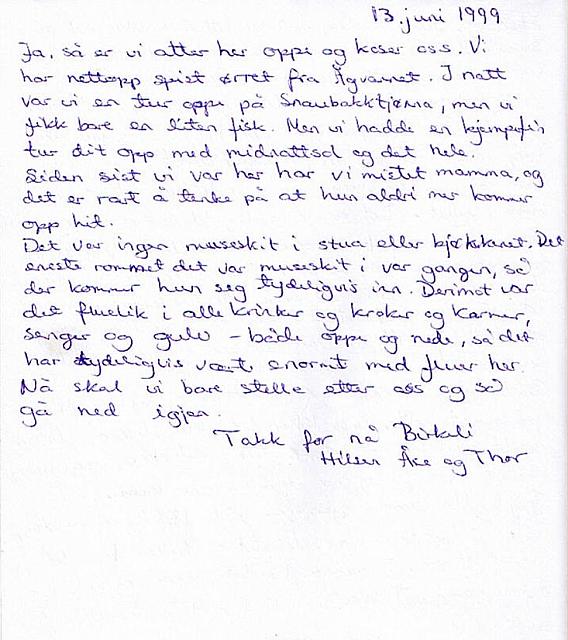 13. juni 1999
Ja, så er vi atter her oppe og koser oss. Vi
har nettopp spist ørret fra Ågvannet. I natt
var vi en tur oppe på Snaubakktjønna, men vi
fikk bare en liten fisk. Men vi hadde en kjempefin
tur dit opp med midnattsol og det hele.
Siden sist vi var her har vi mistet mamma, og
det er rart å tenke på at hun aldri mer kommer
opp hit.
Det var ingen museskit i stua eller kjøkkenet. Det
eneste rommet det var museskit i var gangen, så
der kommer hun seg tydeligvis inn. Derimot var
det fluelik i alle krinker og kroker og karmer,
senger og gulv - både oppe og nede, så det
har tydeligvis vært enormt med fluer her.
Nå skal vi bare stelle etter oss og så
gå ned igjen.
Takk for nå Birkeli
Hilsen og Thor